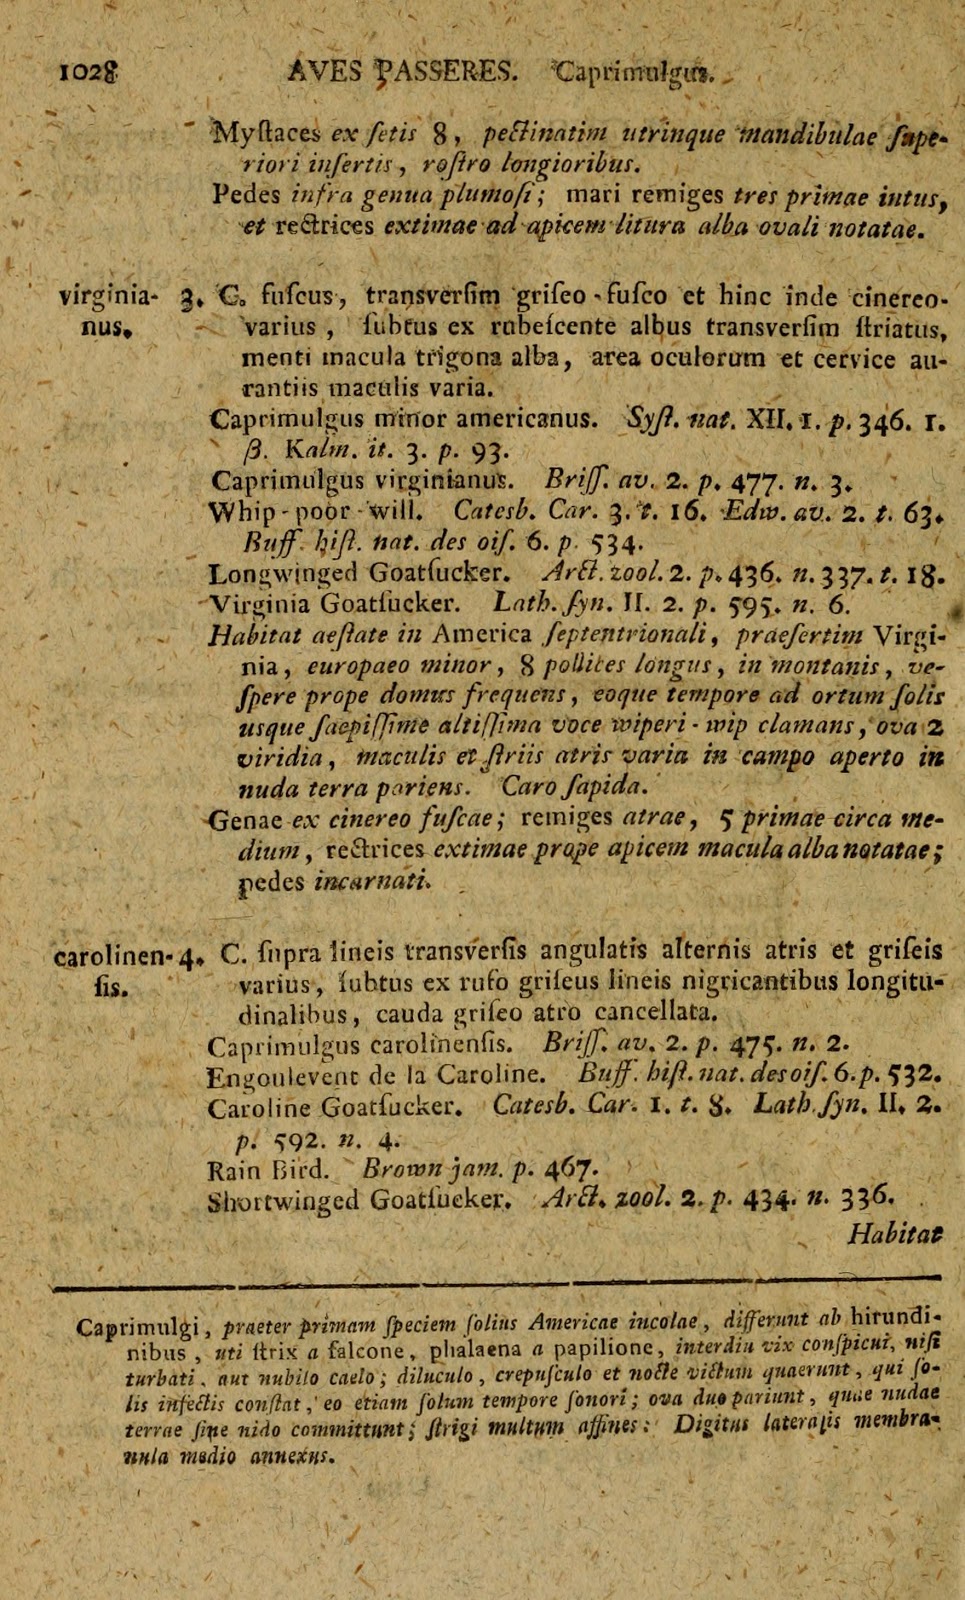 1028 AVES PASSERES. Caprimulgus.
Myſtaces ex ſetis 8, pectinatim utrinque mandibulae ſupe-
riori inſertis, roſtro longioribus.
Pedes infra genua plumoſi; mari remiges tres primae intus,
et rectrices extimae ad apicem litura alba ovali notatae.
virginia- 3. C. fuſcus, transverſim griſeo-fuſco et hinc inde cinereo-
nus. varius, ſubtus ex rubeſcente albus transverſim ſtriatus,
menti macula trigona alba, area oculorum et cervice au-
rantiis maculis varia.
Caprimulgus minor americanus. Syſt. nat. XII. 1. p. 346. 1.
β. Kalm. it. 3. p. 93.
Caprimulgus virginianus. Briſſ. av. 2. p. 477. n. 3.
Whip-poor-will. Catesb. Car. 3. t. 16. Edw. av. 2. t. 63.
Buff. hiſt. nat. des oiſ. 6. p. 534.
Longwinged Goatſucker. Arct. zool. 2. p. 436. n. 337. t. 18.
Virginia Goatſucker. Lath. ſyn. II. 2. p. 595. n. 6.
Habitat aeſtate in America ſeptentrionali, praeſertim Virgi-
nia, europaeo minor, 8 pollices longus, in montanis, ve-
ſpere prope domus frequens, eoque tempore ad ortum ſolis
usque ſaepiſſime altiſſima voce wiperi-wip clamans, ova 2
viridia, maculis et ſtriis atris varia in campo aperto in
nuda terra pariens. Caro ſapida.
Genae ex cinereo fuſcae; remiges atrae, 5 primae circa me-
dium, rectrices extimae prope apicem macula alba notatae;
pedes incarnati.
carolinen- 4. C. ſupra lineis transverſis angulatis alternis atris et griſeis
ſis. varius, ſubtus ex rufo griſeus lineis nigricantibus longitu-
dinalibus, cauda griſeo atro cancellata.
Caprimulgus carolinenſis. Briſſ. av. 2. p. 475. n. 2.
Engoulevent de la Caroline. Buff. hiſt. nat. des oiſ. 6. p. 532.
Caroline Goatſucker. Catesb. Car. 1. t. 8. Lath. ſyn. II. 2.
p. 592. n. 4.
Rain Bird. Brown jam. p. 467.
Shortwinged Goatſucker. Arct. zool. 2. p. 434. n. 336.
Habitat
Caprimulgi, praeter primam ſpeciem ſolius Americae incolae, differunt ab hirundi-
nibus, uti ſtrix a falcone, phalaena a papilione, interdiu vix conſpicui, niſi
turbati, aut nubilo caelo; diluculo, crepuſculo et nocte victum quaerunt, qui ſo-
lis inſectis conſtat, eo etiam ſolum tempore ſonori; ova duo pariunt, quae nudae
terrae ſine nido committunt; ſtrigi multum affines: Digitus lateralis membra-
nula medio annexus.